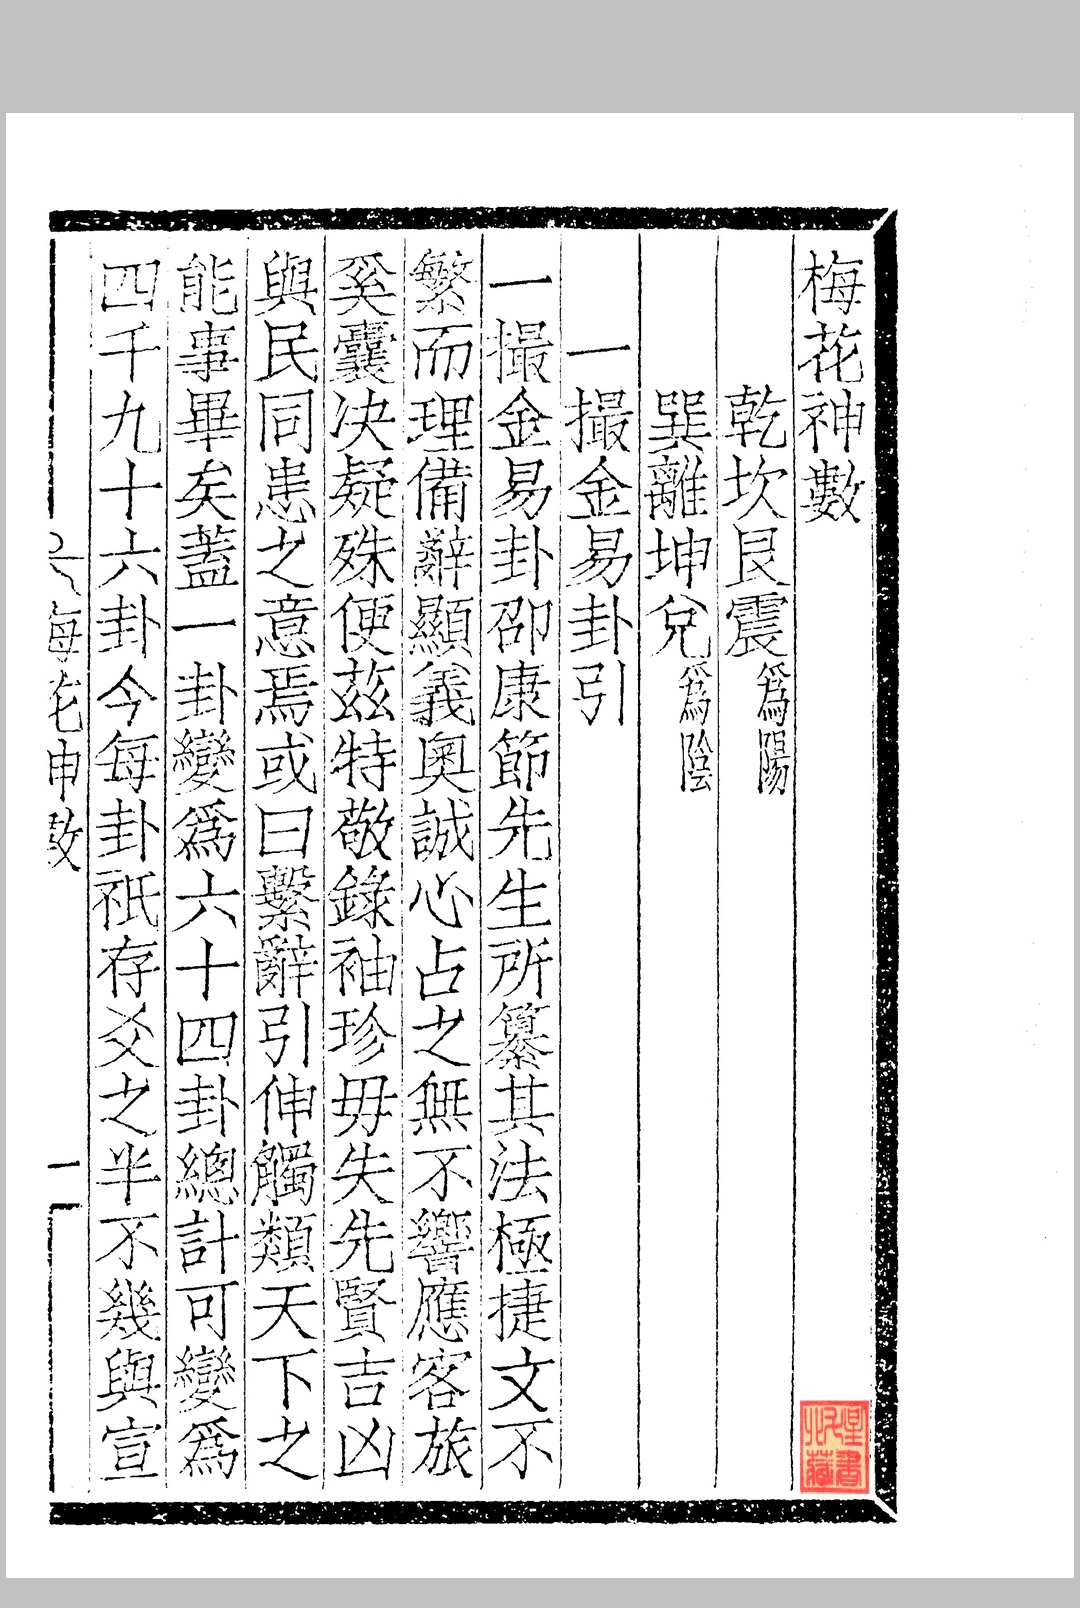 梅花神數
乾坎艮震爲陽
巽離坤兌爲陰
一撮金易卦引
一撮金易卦邵康節先生所纂其法極捷文不
繁而理備辭顯義奧誠心占之無不響應客旅
奚囊决疑殊便茲特敬錄袖珍毋失先賢吉凶
與民同患之意焉或曰繫辭引伸觸類天下之
能事畢矣蓋一卦變爲六十四卦總計可變爲
四千九十六卦今每卦祇存爻之半不幾與宣
梅花神數
一